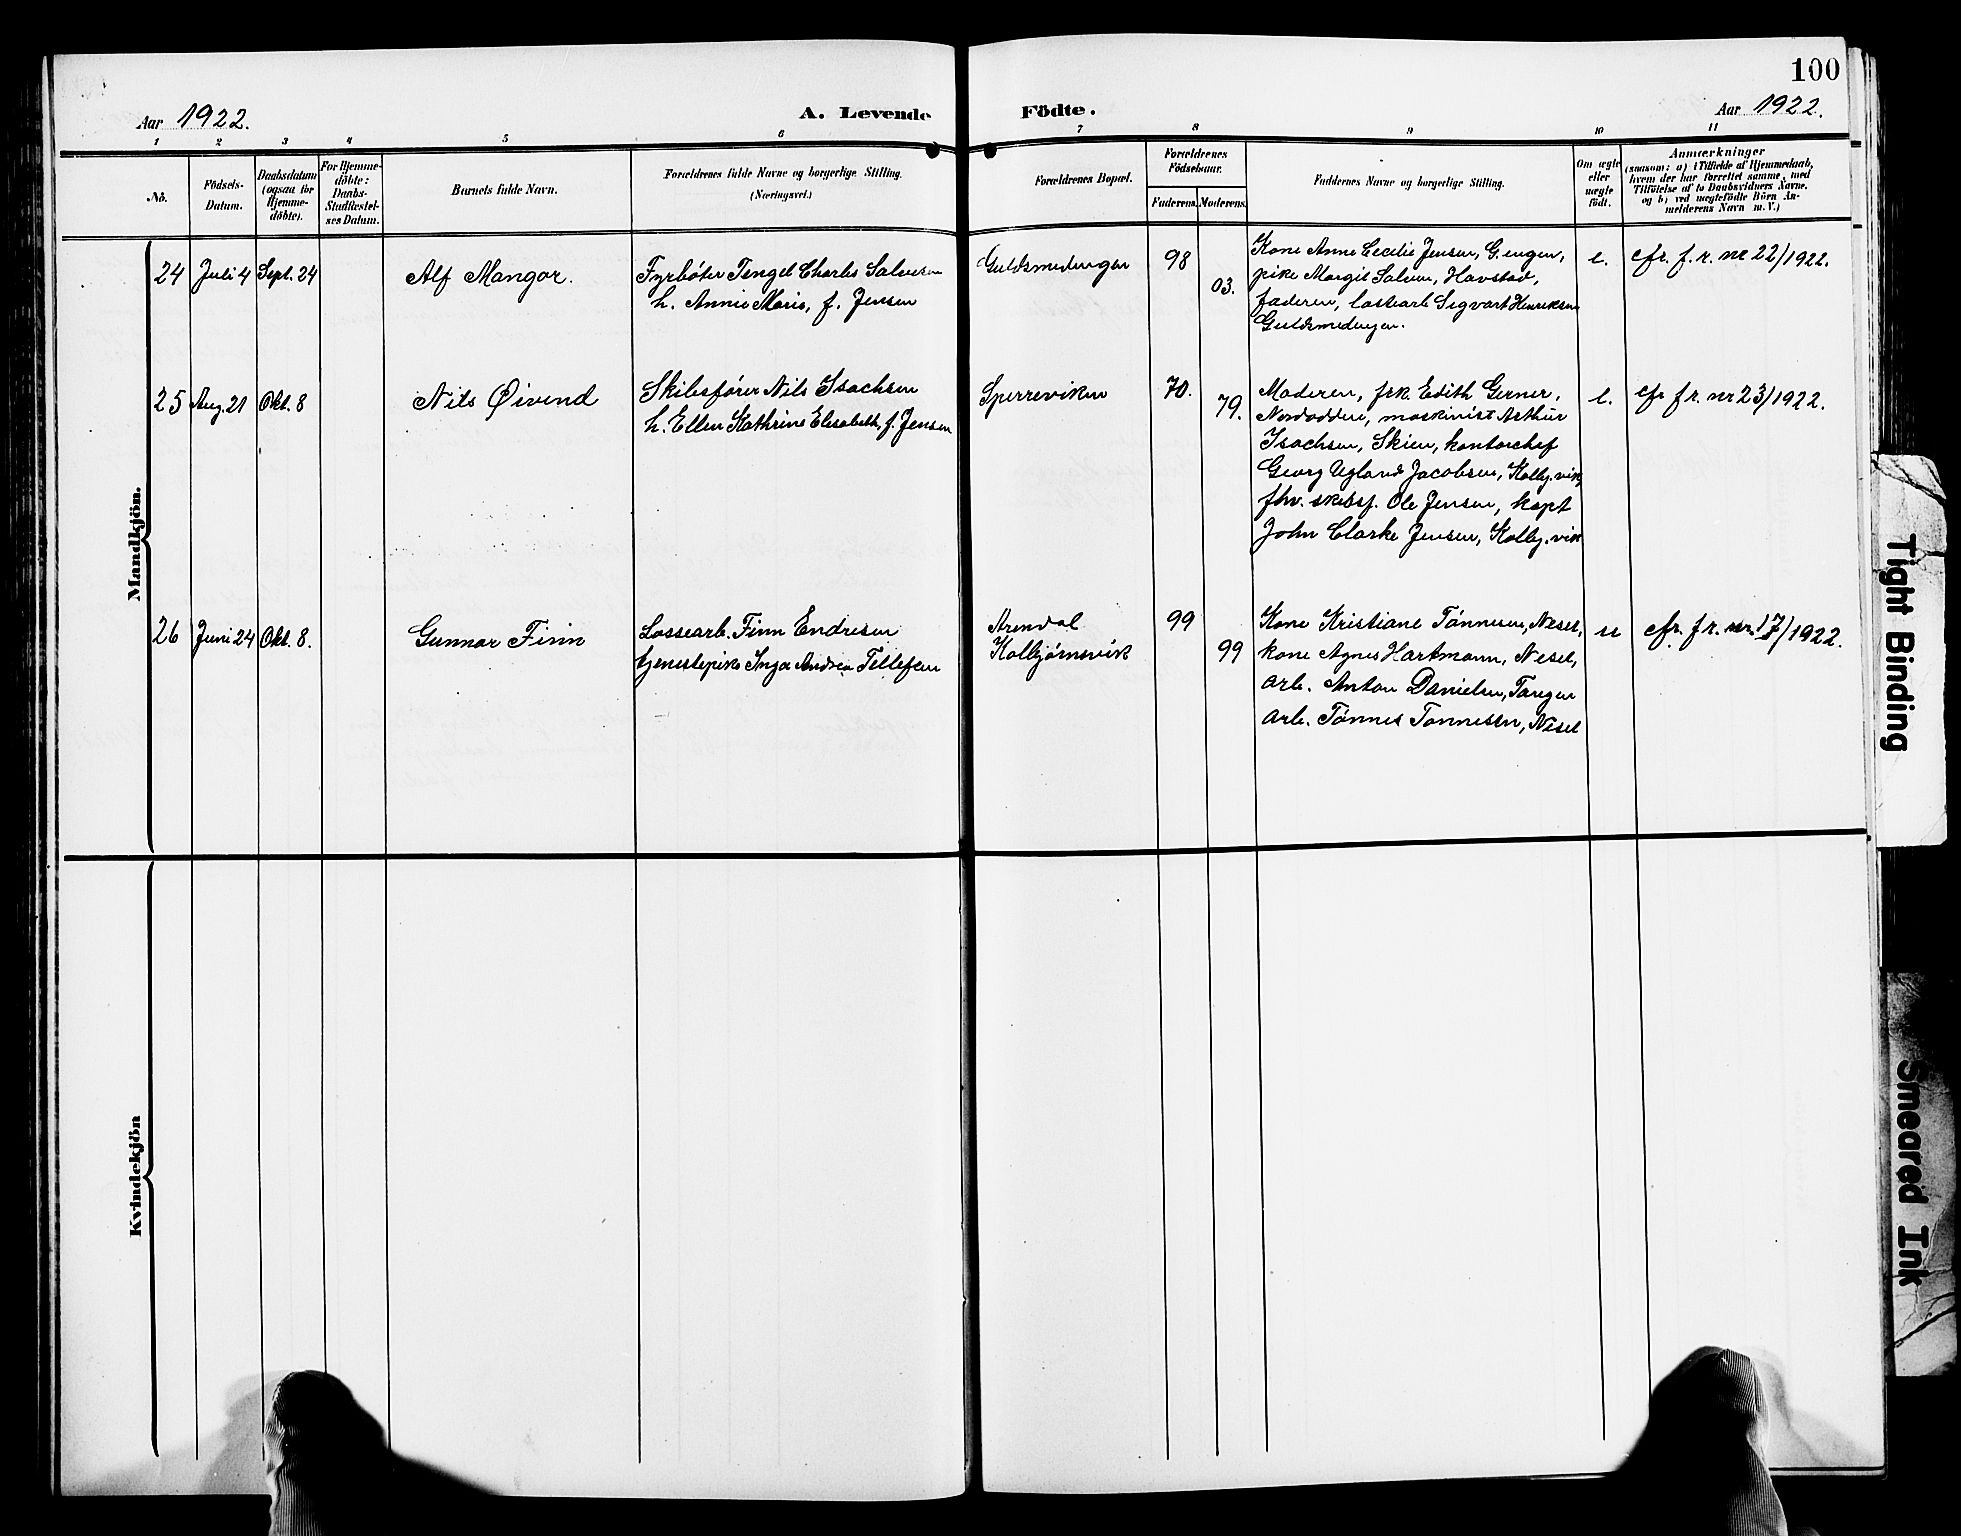 100
Aar 1922.
A. Levende Födte.
Aar 1922.
1 2 3 4 5 6 7 8 9 10 11
No.
Födsels-
Datum.
Daabsdatum
(ogsaa for
Hjemme-
döbte).
For Hjemme-
döbte:
Daabs-
Stadfæstel-
ses Datum.
Barnets fulde Navn.
Forældrenes fulde Navne og borgerlige Stilling.
(Næringsvei.)
Forældrenes Bopæl.
Forældrenes
Födselsaar.
Faderens.
Moderens.
Faddernes Navne og borgerlige Stilling.
Om ægte
eller
uægte
födt.
Anmærkninger
(saasom: a) i Tilfælde af Hjemmedaab,
hvem der har forrettet samme, med
Tilföielse af to Daabsvidners Navne,
og b) ved uægtefödte Börn An-
melderens Navn m. V.)
Mandkjön.
24 Juli 4 Sept. 24
Alf Mangor.
Fyrbøter Tengel Charles Salvesen
h. Annie Marie, f. Jensen
Guldsmedengen
98
03.
Kone Anne Cecilie Jensen, G.engen,
pike Margit Salvesen, Havstad,
faderen, lossearb Sigvart Henriksen
Guldsmedengen.
e.
cfr. f. r. nr 22/1922.
25 Aug. 21 Okt. 8
Nils Øivind
Skibsfører Nils Isachsen
h. Ellen Kathrine Elisabeth, f. Jensen
Sperreviken
70.
79.
Moderen, frk. Edith Gerner,
maskinist Arthur
Isachsen, Skien, kontorchef
Georg Ugland Jacobsen, Kolbj.vik,
fhv. skibsf. Ole Jensen, kapt
John Clarke Jensen, Kolbj.vik
e.
cfr f. r. nr 23/1922.
26 Juni 24 Okt. 8.
Gunnar Finn
Lossearb. Finn Endresen
tjenestepike Inga Andrea Tellefsen
Arendal
Kolbjørnsvik
99
99
Kone Kristiane Tønnesen, Nesel,
kone Agnes Hartmann, Nesel,
arb. Anton Danielsen, Tangen
arb. Tønnes Tønnesen, Nesel
u
cfr. f. r. nr. 17/1922.
Kvindekjön
Tight Binding
Smeared Ink